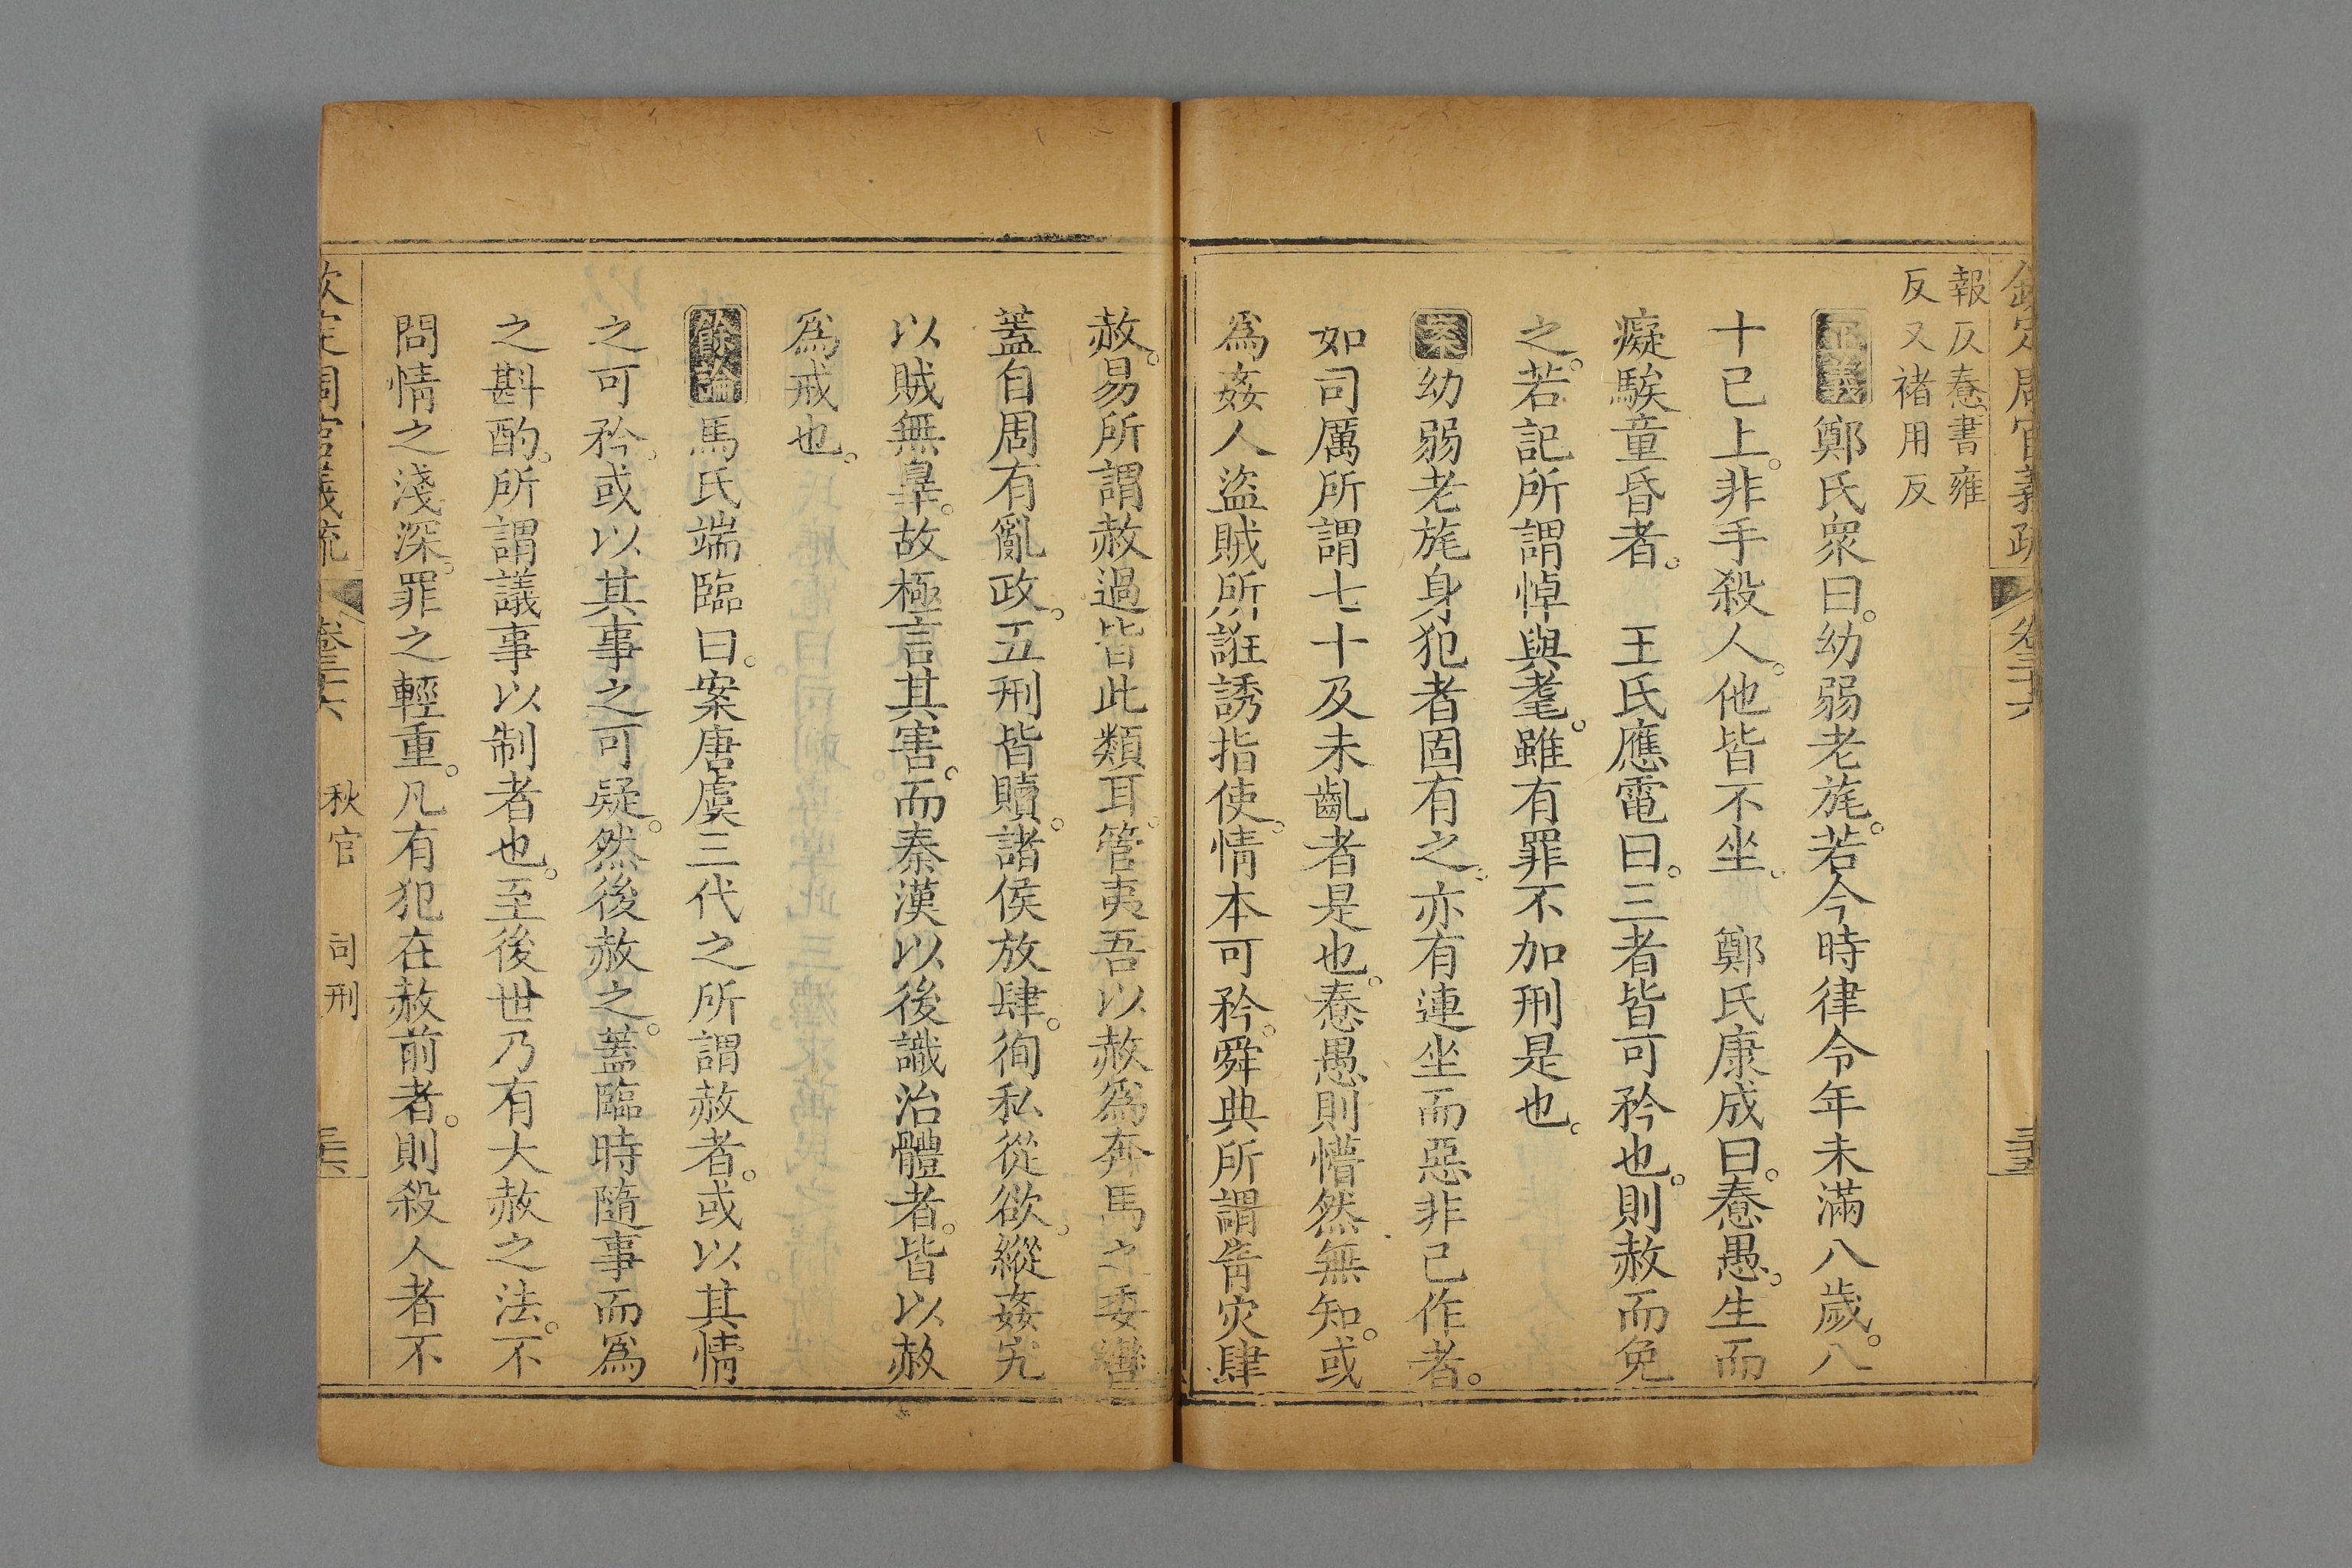 欽定周官義疏 卷三十六 三五
報反惷書雍
反又褚用反
正義鄭氏衆曰。幼弱老旄。若今時律令年未滿八歲。八
十已上。非手殺人。他皆不坐。 鄭氏康成曰。惷愚。生而
癡騃童昏者。 王氏應電曰。三者皆可矜也。則赦而免
之。若記所謂悼與耄。雖有罪不加刑是也。
案幼弱老旄身犯者固有之。亦有連坐而惡非己作者。
如司厲所謂七十及未齓者是也。惷愚則懵然無知。或
爲姦人盜賊所誑誘指使。情本可矜。舜典所謂眚灾肆
赦。易所謂赦過皆此類耳。管夷吾以赦爲奔馬之委轡
蓋自周有亂政。五刑皆贖。諸侯放肆。徇私從欲。縱姦宄
以賊無辠。故極言其害。而秦漢以後識治體者。皆以赦
爲戒也。
餘論馬氏端臨曰。案唐虞三代之所謂赦者。或以其情
之可矜。或以其事之可疑。然後赦之。蓋臨時隨事而爲
之斟酌。所謂議事以制者也。至後世乃有大赦之法。不
問情之淺深。罪之輕重。凡有犯在赦前者。則殺人者不
欽定周官義疏 卷三十六 秋官 司刑 三六